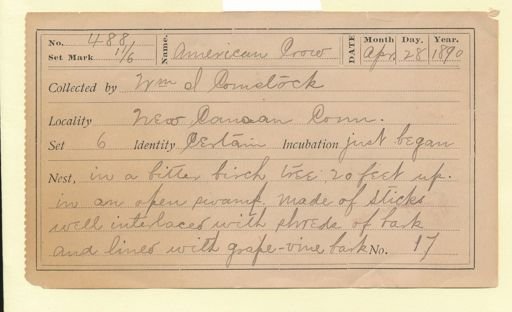 No. 488 Name. American Crow DATE Month Day. Year.
Set Mark 11/6 Apr. 28 1890
Collected by Wm I Comstock
Locality New Canaan Conn.
Set 6 Identity Certain Incubation just began
Nest, in a bitter birch tree, 20 feet up.
in an open swamp, made of sticks
well interlaced with shreds of bark
and lined with grape-vine bark No. 17